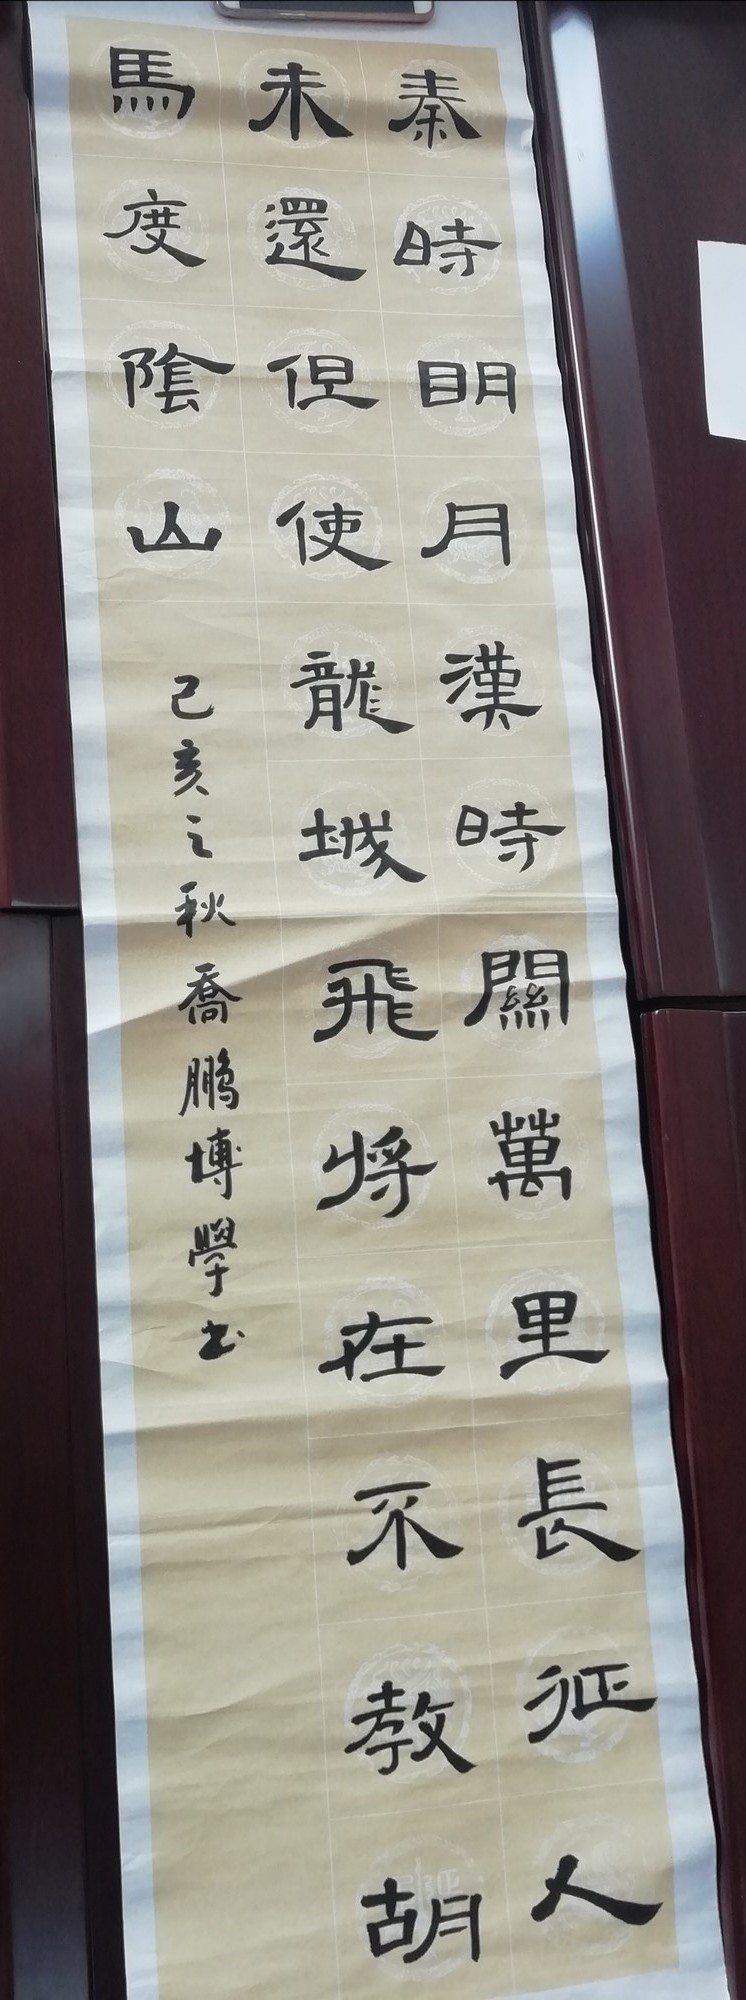 秦時明月漢時關萬里長征人
未還但使龍城飛将在不教胡
馬度陰山
己亥之秋喬鵬博學書